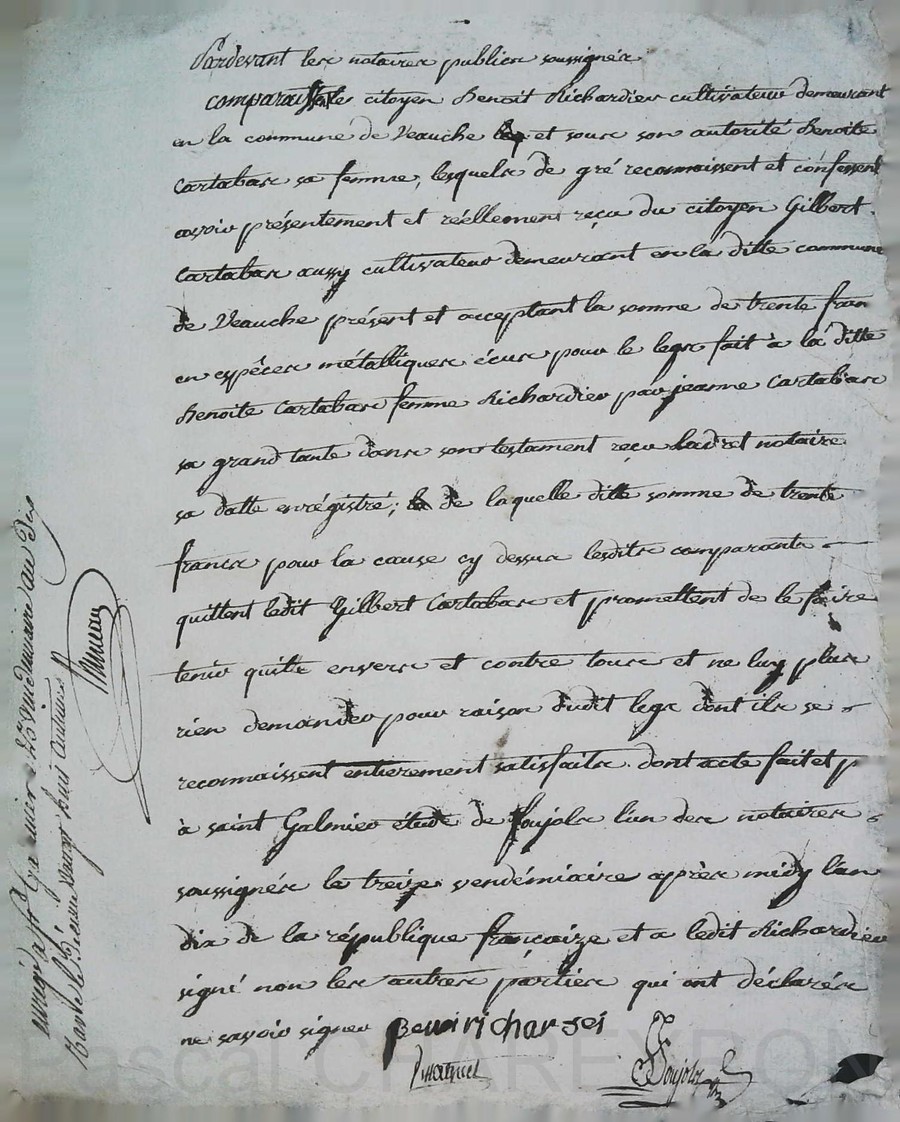 Pardevant les notaires publics soussignés
comparaissoit les citoyen Benoit Richardier cultivateur demeurant
en la commune de Veauche et sous son autorité Benoite
Cartabas sa femme, lesquels de gré reconnoissent et confessent
avoir présentement et réellement reçu du citoyen Gilbert
Cartabas aussy cultivateur demeurant en la ditte commune
de Veauche présent et acceptant la somme de trente fran
en espêces métalliques écus pour le legs fait à la ditte
Benoite Cartabas femme Richardier par jeanne Cartabas
sa grand tante dans son testament reçu notaire
sa datte enrégistré; de laquelle ditte somme de trente
francs pour la cause cy dessus lesdits comparants
quittent ledit Gilbert Cartabas et promettent de le faire
tenir quitte envers et contre tous et ne luy plus
rien demander pour raison dudit legs dont ils se
reconnaissent entierement satisfaits dont acte fait et p
à saint Galmier étude de Poujols l'un des notaires
soussignés le treize vendémiaire après midy l'an
dix de la république françaize et a ledit Richardier
signé non les autres parties qui ont déclarés
ne savoir signer Benoi richar dei
Poujols
vindemiaire an dix
Pascal CHAREYRON